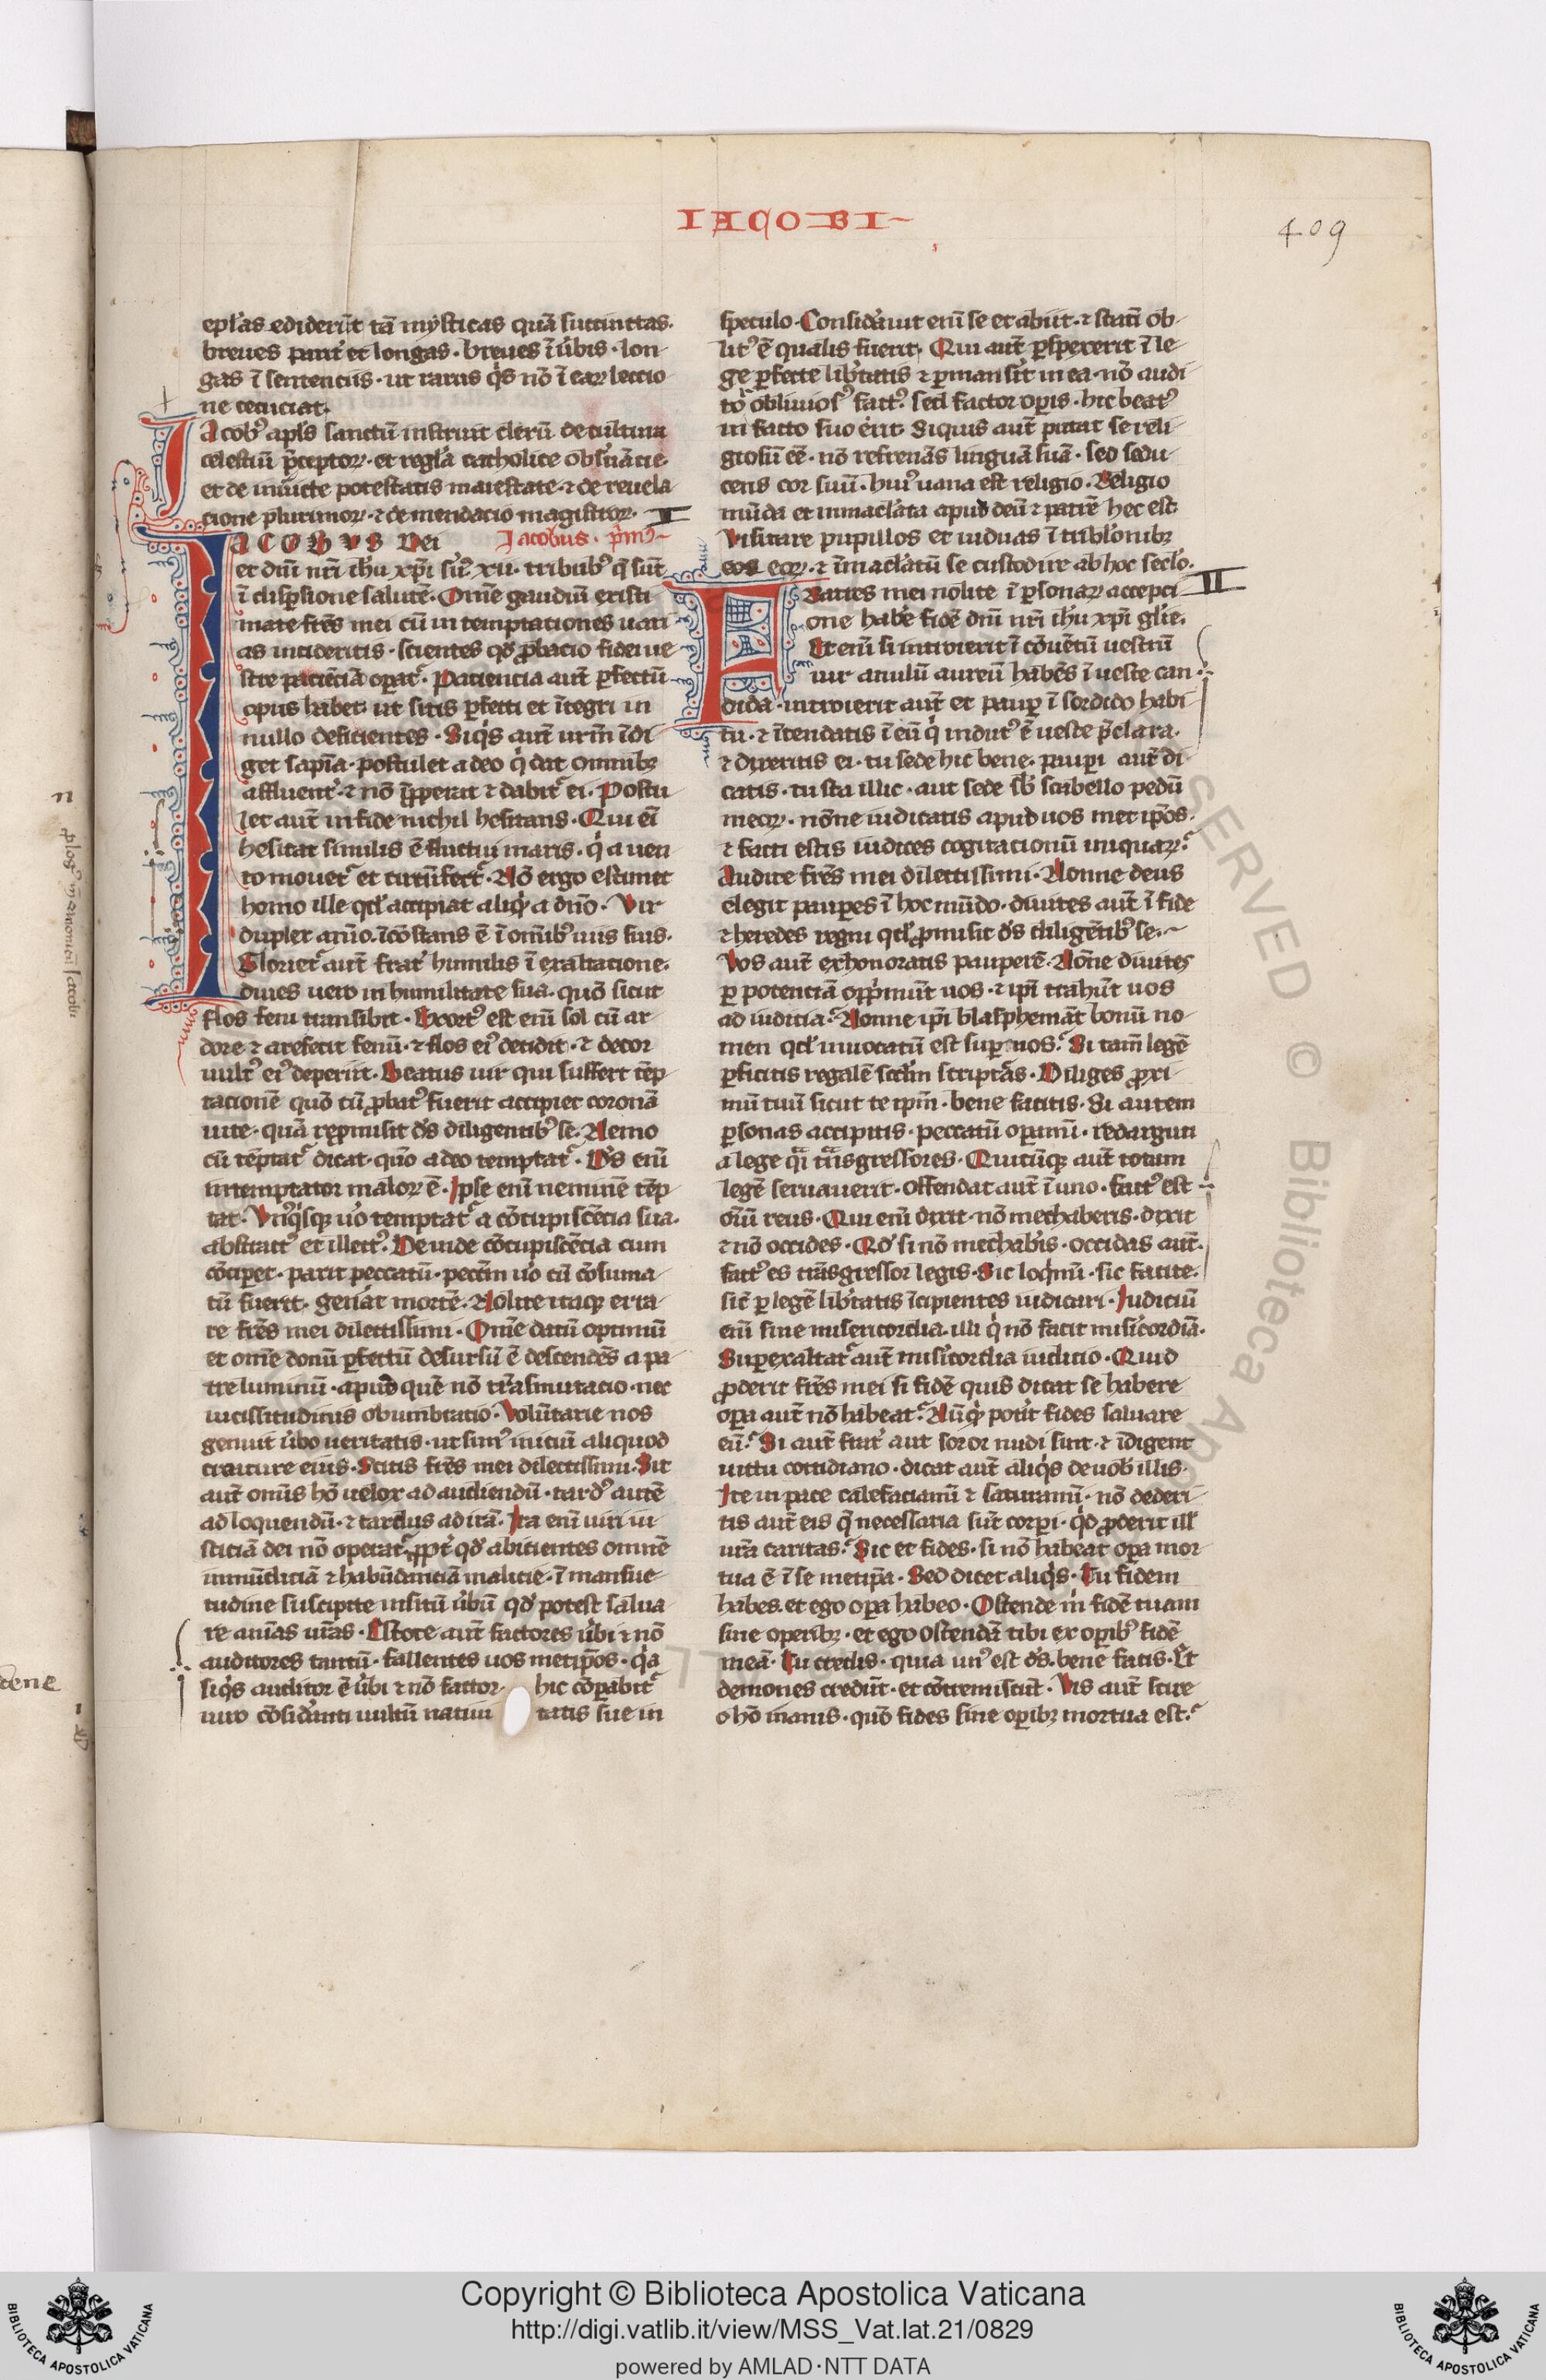 IACOBI
409
ep̃las ediderũt tã mysticas quã succinctas.
breues parit̾ et longas. breues ĩ ũbis. lon
gas ĩ sentenciis. ut rarus q̾s nõ ĩ eaꝝ lectio
ne cecuciat.
Iacob᷒ apl̃s sanctũ instruit clerũ de cultura
celestiũ p̃ceptoꝝ. et regl̃a catholice obs̾uãcie.
et de inuicte potestatis maiestate. ⁊ de reuela
cione plurimoꝝ. ⁊ de mendacio magistroꝝ. I
IACOBVS Dei Jacobus. p̃m᷒
et dñi nr̃i ihũ xp̃i s̾u᷒ xii. tribub᷒ q̃ sũt
ĩ disp̱sione salutẽ. Om̃e gaudiũ existi
mate fr̃es mei cũ in temptationes uari
as incideritis. scientes qd̾ ꝓbacio fidei ue
stre paciẽciã oꝑat᷑. Paciencia aut̃ ꝑfectũ
opus habet ut sitis ꝑfecti et ĩtegri in
nullo deficientes. Siq̾s aut̃ ur̃m ĩdi
get sapĩa. postulet a deo q̾ dat omnibꝫ
affluent̾. ⁊ nõ ĩproperat ⁊ dabit᷑ ei. Postu
let aut̃ in fide nichil hesitans. Qui ei̾
hesitat similis ẽ fluctui maris. q̾ a uen
to mouet᷑ et circũfert᷑. Nõ ergo estimet
homo ille qd̾ accipiat aliq̾ a dño. Vir
duplex aĩo. ĩcõstans ẽ ĩ om̃ib᷒ uiis suis.
Gloriet᷑ aut̃ frat̾ humilis ĩ exaltatione.
diues uero in humilitate sua. quõ sicut
flos feni transibit. Exort᷒ est eñ sol cũ ar
dore ⁊ arefecit fenũ. ⁊ flos ei᷒ decidit. ⁊ decor
uult᷒ ei᷒ deperiit. Beatus uir qui suffert tẽp
tacionẽ quõ cũ ꝓbat᷒ fuerit accipiet coronã
uite. quã repmisit ds̾ diligentib᷒ se. Nemo
cũ tẽptat᷑ dicat. quõ a deo temptat᷑. Ds̾ eñ
intemptator maloꝝ ẽ. Ipse eñ neminẽ tẽp
tat. Vn᷒q̾sqꝫ uo̾ temptat᷑ a cõcupiscẽcia sua.
abstract᷒ et illect᷒. Deinde cõcupiscẽcia cum
cõceperit. parit peccatũ. pectm̃ uo̾ cũ cõsuma
tũ fuerit. gen̾at mortẽ. Nolite itaqꝫ erra
re fr̃es mei dilectissimi. Om̃e datũ optimũ
et om̃e donũ ꝑfectũ desursũ ẽ descendẽs a pa
tre luminũ. apud quẽ nõ tr̃asmutacio. nec
uicissitudinis obumbracio. Volũtarie nos
genuit ũbo ueritatis. ut sim᷒ iniciũ aliquod
creature eius. Scitis fr̃es mei dilectissimi. Sit
aut̃ om̃is hõ uelox ad audiendũ. tard᷒ autẽ
ad loquendũ. ⁊ tardus ad irã. Ira eñ uiri iu
sticiã dei nõ operat᷑. ꝓpt̾ qd̾ abicientes omnẽ
inmũdiciã ⁊ habũdanciã malicie. ĩ mansue
tudine suscipite insitũ ũbũ qd̾ potest salua
re aĩas ur̃as. Estote aut̃ factores ũbi ⁊ nõ
auditores tantũ. fallentes uos metip̃os. q̾a
siq̾s auditor ẽ ũbi ⁊ nõ factor. hic cõꝑabit᷑
uiro cõsid̾anti uultũ natiui tatis sue in
speculo. Consid̾auit eñ se et abiit. ⁊ statĩ ob
lit᷒ ẽ qualis fuerit. Qui aut̃ ꝑspexerit ĩ le
ge ꝑfecte lib̾tatis ⁊ ꝑmans̾it in ea. nõ audi
to᷑ obliuios᷒ fact᷒. sed factor oꝑis. hic beat᷒
in facto suo e̾rit. Siquis aut̃ putat se reli
giosũ eẽ. nõ refrenãs linguã suã. sed sedu
cens cor suũ. hui᷒ uana est religio. Religio
mũda et inmacl̃ata apud deũ ⁊ patrẽ hec est
Visitare pupillos et uiduas ĩ tribl̃onibꝫ
eos eoꝝ. ⁊ ĩmacl̃atũ se custodire ab hoc secl̃o. II
Fratres mei nolite ĩ ꝑsonaꝝ accepci
one hab̾e fidẽ dñi nr̃i ihũ xp̃i gl̃ie.
Et eñ si introierit ĩ cõuẽtũ uestrũ
uir anulũ aureũ habẽs ĩ ueste can
dida. introierit aut̃ et pauꝑ ĩ sordido habi
tu. ⁊ ĩtendatis ĩ eũ q̾ indut᷒ ẽ ueste p̃clara.
⁊ dixeritis ei. tu sede hic bene. pauꝑi aut̃ di
catis. tu sta illic. aut sede sb̾ scabello pedũ
meoꝝ. nõne iudicatis apud uos met ip̃os.
⁊ facti estis iudices cogitacionũ iniquaꝝ.
Audite fr̃es mei dilectissimi. Nonne deus
elegit pauꝑes ĩ hoc mũdo. diuites aut̃ ĩ fide
⁊ heredes regni qd̾ ꝓmisit ds̾ diligẽtib᷒ se.
Vos aut̃ exhonoratis pauperẽ. Nõne diuites
ꝑ potenciã opp̃mũt uos. ⁊ ip̃i trahũt uos
ad iudicia. Nonne ip̃i blasphemãt bonũ no
men qd̾ inuocatũ est suꝑ uos. Si tam̃ legẽ
ꝑficitis regalẽ scd̾m scriptãs. Diliges ꝓxi
mũ tuũ sicut te ip̃m. bene facitis. Si autem
ꝑsonas accipitis. peccatũ oꝑamĩ. redarguti
a lege q̃i trãsgressores. Quicũqꝫ aut̃ totum
legẽ seruauerit. offendat aut̃ ĩ uno. fact᷒ est
oĩu reus. Qui eñ dixit nõ mechaberis. dixit
⁊ nõ occides. Qd̾ si nõ mechab̾is. occidas aut̃.
fact᷒ es trãsgressor legis. Sic loq̾mĩ. sic facite.
sic̾ ꝑ legẽ lib̾tatis ĩcipientes iudicari. Iudiciũ
eñ sine misericordia. illi q̾ nõ facit mis̾icordiã.
Suꝑexaltat᷑ aut̃ mis̾icordia iudicio. Quid
ꝓderit fr̃es mei si fidẽ quis dicat se habere
oꝑa aut̃ nõ habeat. Nũq̾ pot̾it fides saluare
eũ. Si aut̃ frat̾ aut soror nudi sint. ⁊ ĩdigent
uictu cottidiano. dicat aut̃ aliq̾s de uob̾ illis.
Ite in pace calefaciamĩ ⁊ saturamĩ. nõ dederi
tis aut̃ eis q̃ necessaria sũt corꝑi. q̾d ꝓderit ill̾
ur̃a caritas. Sic et fides. si nõ habeat oꝑa mor
tua ẽ ĩ se metip̃a. Sed dicet aliq̾s. Tu fidem
habes. et ego oꝑa habeo. Ostende m̾ fidẽ tuam
sine operibꝫ. et ego ostendã tibi ex oꝑib᷒ fidẽ
meã. Tu credis. quia un᷒ est ds̾. bene facis. Et
demones credũt. et cõtremiscũt. Vis aut̃ scire
o hõ inanis. quõ fides sine oꝑibꝫ mortua est.
Copyright © Biblioteca Apostolica Vaticana
http://digi.vatlib.it/view/MSS_Vat.lat.21/0829
powered by AMLAD·NTT DATA
BIBLIOTECA APOSTOLICA VATICANA
BIBLIOTECA APOSTOLICA VATICANA